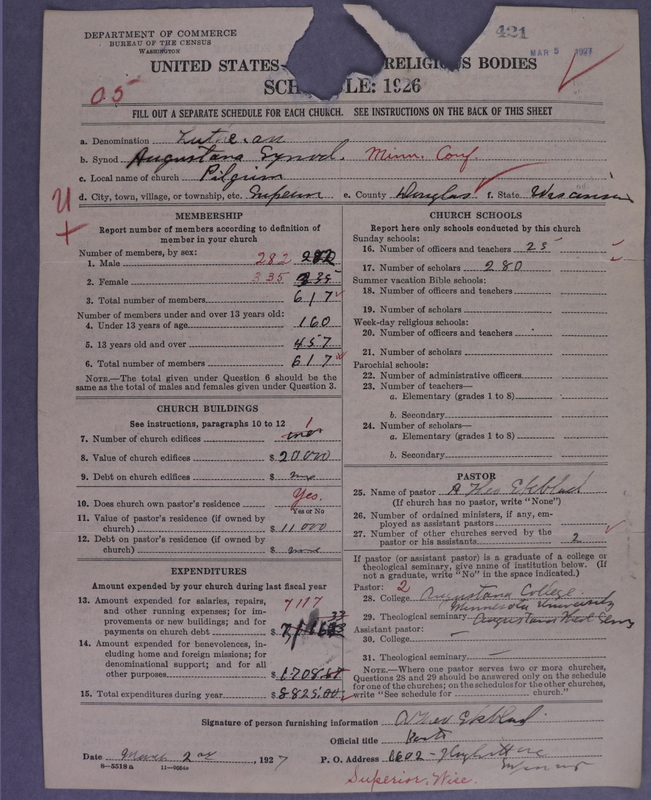 DEPARTMENT OF COMMERCE
BUREAU OF THE CENSUS
WASHINGTON
421
MAR 5 1927
UNITED STATES RELIGIOUS BODIES
SCHEDULE: 1926
05
FILL OUT A SEPARATE SCHEDULE FOR EACH CHURCH. SEE INSTRUCTIONS ON THE BACK OF THIS SHEET
a. Denomination Lutheran
b. Synod Augustana Synod. Minn. Conf.
c. Local name of church Pilgrim
d. City, town, village, or township, etc. Superior e. County Douglas f. State Wisconsin
MEMBERSHIP
Report number of members according to definition of
member in your church
Number of members, by sex:
1. Male 282 282
2. Female 335 335
3. Total number of members 617
Number of members under and over 13 years old:
4. Under 13 years of age 160
5. 13 years old and over 457
6. Total number of members 617
NOTE.—The total given under Question 6 should be the
same as the total of males and females given under Question 3.
CHURCH BUILDINGS
See instructions, paragraphs 10 to 12
7. Number of church edifices 1 one
8. Value of church edifices $ 20,000
9. Debt on church edifices $
10. Does church own pastor's residence Yes.
Yes or No
11. Value of pastor's residence (if owned by
church) $ 11000
12. Debt on pastor's residence (if owned by
church) $ none
EXPENDITURES
Amount expended by your church during last fiscal year
13. Amount expended for salaries, repairs,
and other running expenses; for im-
provements or new buildings; and for
payments on church debt $ 7117
14. Amount expended for benevolences, in-
cluding home and foreign missions; for
denominational support; and for all
other purposes $ 1708
15. Total expenditures during year $ 8825.00
CHURCH SCHOOLS
Report here only schools conducted by this church
Sunday schools:
16. Number of officers and teachers 25
17. Number of scholars 280
Summer vacation Bible schools:
18. Number of officers and teachers
19. Number of scholars
Week-day religious schools:
20. Number of officers and teachers
21. Number of scholars
Parochial schools:
22. Number of administrative officers
23. Number of teachers—
a. Elementary (grades 1 to 8)
b. Secondary
24. Number of scholars—
a. Elementary (grades 1 to 8)
b. Secondary
PASTOR
25. Name of pastor A Theo Ekblad
(If church has no pastor, write "None")
26. Number of ordained ministers, if any, em-
ployed as assistant pastors
27. Number of other churches served by the
pastor or his assistants 2
If pastor (or assistant pastor) is a graduate of a college or
theological seminary, give name of institution below. (If
not a graduate, write "No" in the space indicated.)
Pastor: 2
28. College Augustana College
Minnesota University
29. Theological seminary Augustana
Assistant pastor:
30. College —
31. Theological seminary —
NOTE.—Where one pastor serves two or more churches,
Questions 28 and 29 should be answered only on the schedule
for one of the churches; on the schedules for the other churches,
write "See schedule for church."
Signature of person furnishing information A Theo Ekblad
Official title Pastor
Date March 2nd, 1927 P. O. Address
8—5518a 11—9654a
Superior, Wisc.